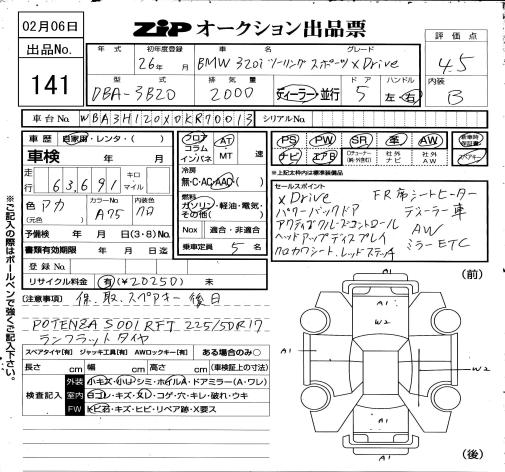 02月06日 ZIPオークション出品票
出品No. 141
年式 初年度登録 26年 月 車名 BMW 320i ツーリング スポーツ xDrive グレード
型式 DBA-3B20 排気量 2000 ディーラー・並行 ドア 5 ハンドル 左・右
評価点 4.5
内装 B
車台No. WBA3H120X0KR70013 シリアルNo.
車歴 自家用・レンタ・( )
車検 年 月
走行 63,691 キロ マイル
色 アカ (元色) カラーNo. A75 内装色 クロ
予備検 年 月 日(3・8)No.
書類有効期限 年 月 日
登録No.
リサイクル料金 有(¥20250) 無
フロア コラム インパネ AT MT 速
冷房 無・C・AC・AAC・( )
燃料 ガソリン・軽油・電気・その他( )
Nox 適合・非適合
乗車定員 5 名
PS PW SR 革 AW
ナビ エアB 社外ナビ 社外AW
新車時保証書
スペアキー
※上記太枠内は標準装備品
セールスポイント
xDrive FR席シートヒーター
パワーバックドア ディーラー車
アクティブクルーズコントロール AW
ヘッドアップディスプレイ ミラーETC
クロカワシート、レッドステッチ
注意事項 保、取、スペアキー 後日
POTENZA S001 RFT 225/50R17
ランフラットタイヤ
スペアタイヤ[有] ジャッキ工具[有] AWロックキー[有] ある場合のみ○
長さ cm 幅 cm 高さ cm (車検証上の寸法)
検査記入
外装 小キズ・小凹・シミ・ホイルA・ドアミラー(A・ワレ)
室内 ヨゴレ・キズ・スレ・コゲ・穴・キレ・破れ・ウキ
FW トビ石・キズ・ヒビ・リペア跡・X要ス
※ご記入の際はボールペンで強くご記入下さい。
(前)
A1
W2
A1
W2
A1
A1
(後)